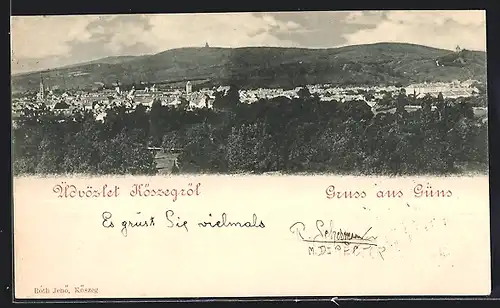 Üdvözlet Kőszegről
Gruss aus Güns
Es grüst Sie vielmals
R.
Róth Jenő, Kőszeg.